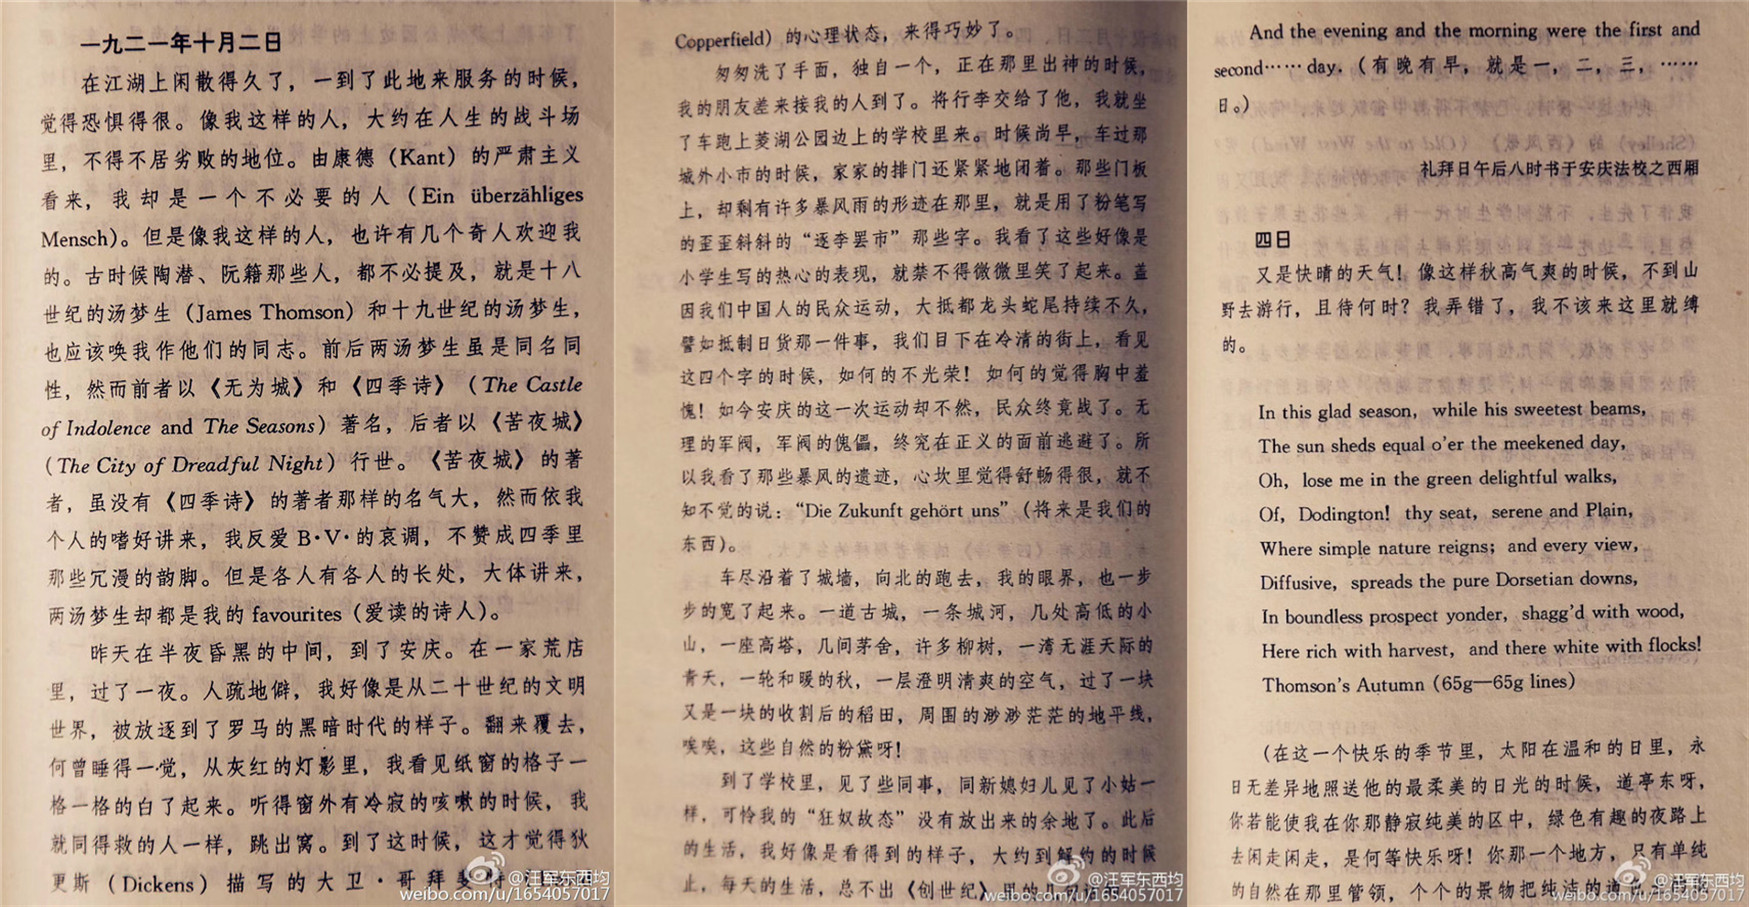 一九二一年十月二日
在江湖上闲散得久了，一到了此地来服务的时候，
觉得恐惧得很。像我这样的人，大约在人生的战斗场
里，不得不居劣败的地位。由康德（Kant）的严肃主义
看来，我却是一个不必要的人（Ein überzähliges
Mensch）。但是像我这样的人，也许有几个奇人欢迎我
的。古时候陶潜、阮籍那些人，都不必提及，就是十八
世纪的汤梦生（James Thomson）和十九世纪的汤梦生，
也应该唤我作他们的同志。前后两汤梦生虽是同名同
性，然而前者以《无为城》和《四季诗》（The Castle
of Indolence and The Seasons）著名，后者以《苦夜城》
（The City of Dreadful Night）行世。《苦夜城》的著
者，虽没有《四季诗》的著者那样的名气大，然而依我
个人的嗜好讲来，我反爱 B·V·的哀调，不赞成四季里
那些冗漫的韵脚。但是各人有各人的长处，大体讲来，
两汤梦生却都是我的 favourites（爱读的诗人）。
昨天在半夜昏黑的中间，到了安庆。在一家荒店
里，过了一夜。人疏地僻，我好像是从二十世纪的文明
世界，被放逐到了罗马的黑暗时代的样子。翻来覆去，
何曾睡得一觉，从灰红的灯影里，我看见纸窗的格子一
格一格的白了起来。听得窗外有冷寂的咳嗽的时候，我
就同得救的人一样，跳出窝。到了这时候，这才觉得狄
更斯（Dickens）描写的大卫·哥拜
@汪军东西均
weibo.com/u/1654057017
Copperfield）的心理状态，来得巧妙了。
匆匆洗了手面，独自一个，正在那里出神的时候，
我的朋友差来接我的人到了。将行李交给了他，我就坐
了车跑上菱湖公园边上的学校里来。时候尚早，车过那
城外小市的时候，家家的排门还紧紧地闭着。那些门板
上，却剩有许多暴风雨的形迹在那里，就是用了粉笔写
的歪歪斜斜的“逐李罢市”那些字。我看了这些好像是
小学生写的热心的表现，就禁不得微微里笑了起来。盖
因我们中国人的民众运动，大抵都龙头蛇尾持续不久，
譬如抵制日货那一件事，我们目下在冷清的街上，看见
这四个字的时候，如何的不光荣！如何的觉得胸中羞
愧！如今安庆的这一次运动却不然，民众终竟战了。无
理的军阀，军阀的傀儡，终究在正义的面前逃避了。所
以我看了那些暴风的遗迹，心坎里觉得舒畅得很，就不
知不觉的说：“Die Zukunft gehört uns”（将来是我们的
东西）。
车尽沿着了城墙，向北的跑去，我的眼界，也一步
步的宽了起来。一道古城，一条城河，几处高低的小
山，一座高塔，几间茅舍，许多柳树，一湾无涯天际的
青天，一轮和暖的秋，一层澄明清爽的空气，过了一块
又是一块的收割后的稻田，周围的渺渺茫茫的地平线，
唉唉，这些自然的粉黛呀！
到了学校里，见了些同事，同新媳妇儿见了小姑一
样，可怜我的“狂奴故态”没有放出来的余地了。此后
的生活，我好像是看得到的样子，大约到解约的时候
止，每天的生活，总不出《创世纪》里的几句话
@汪军东西均
weibo.com/u/1654057017
And the evening and the morning were the first and
second……day.（有晚有早，就是一，二，三，……
日。）
礼拜日午后八时书于安庆法校之西厢
四日
又是快晴的天气！像这样秋高气爽的时候，不到山
野去游行，且待何时？我弄错了，我不该来这里就缚
的。
In this glad season, while his sweetest beams,
The sun sheds equal o'er the meekened day,
Oh, lose me in the green delightful walks,
Of, Dodington! thy seat, serene and Plain,
Where simple nature reigns; and every view,
Diffusive, spreads the pure Dorsetian downs,
In boundless prospect yonder, shagg'd with wood,
Here rich with harvest, and there white with flocks!
Thomson's Autumn (65g—65g lines)
（在这一个快乐的季节里，太阳在温和的日里，永
日无差异地照送他的最柔美的日光的时候，道亭东呀，
你若能使我在你那静寂纯美的区中，绿色有趣的夜路上
去闲走闲走，是何等快乐呀！你那一个地方，只有单纯
的自然在那里管领，个个的景物把纯洁的道
@汪军东西均
weibo.com/u/1654057017